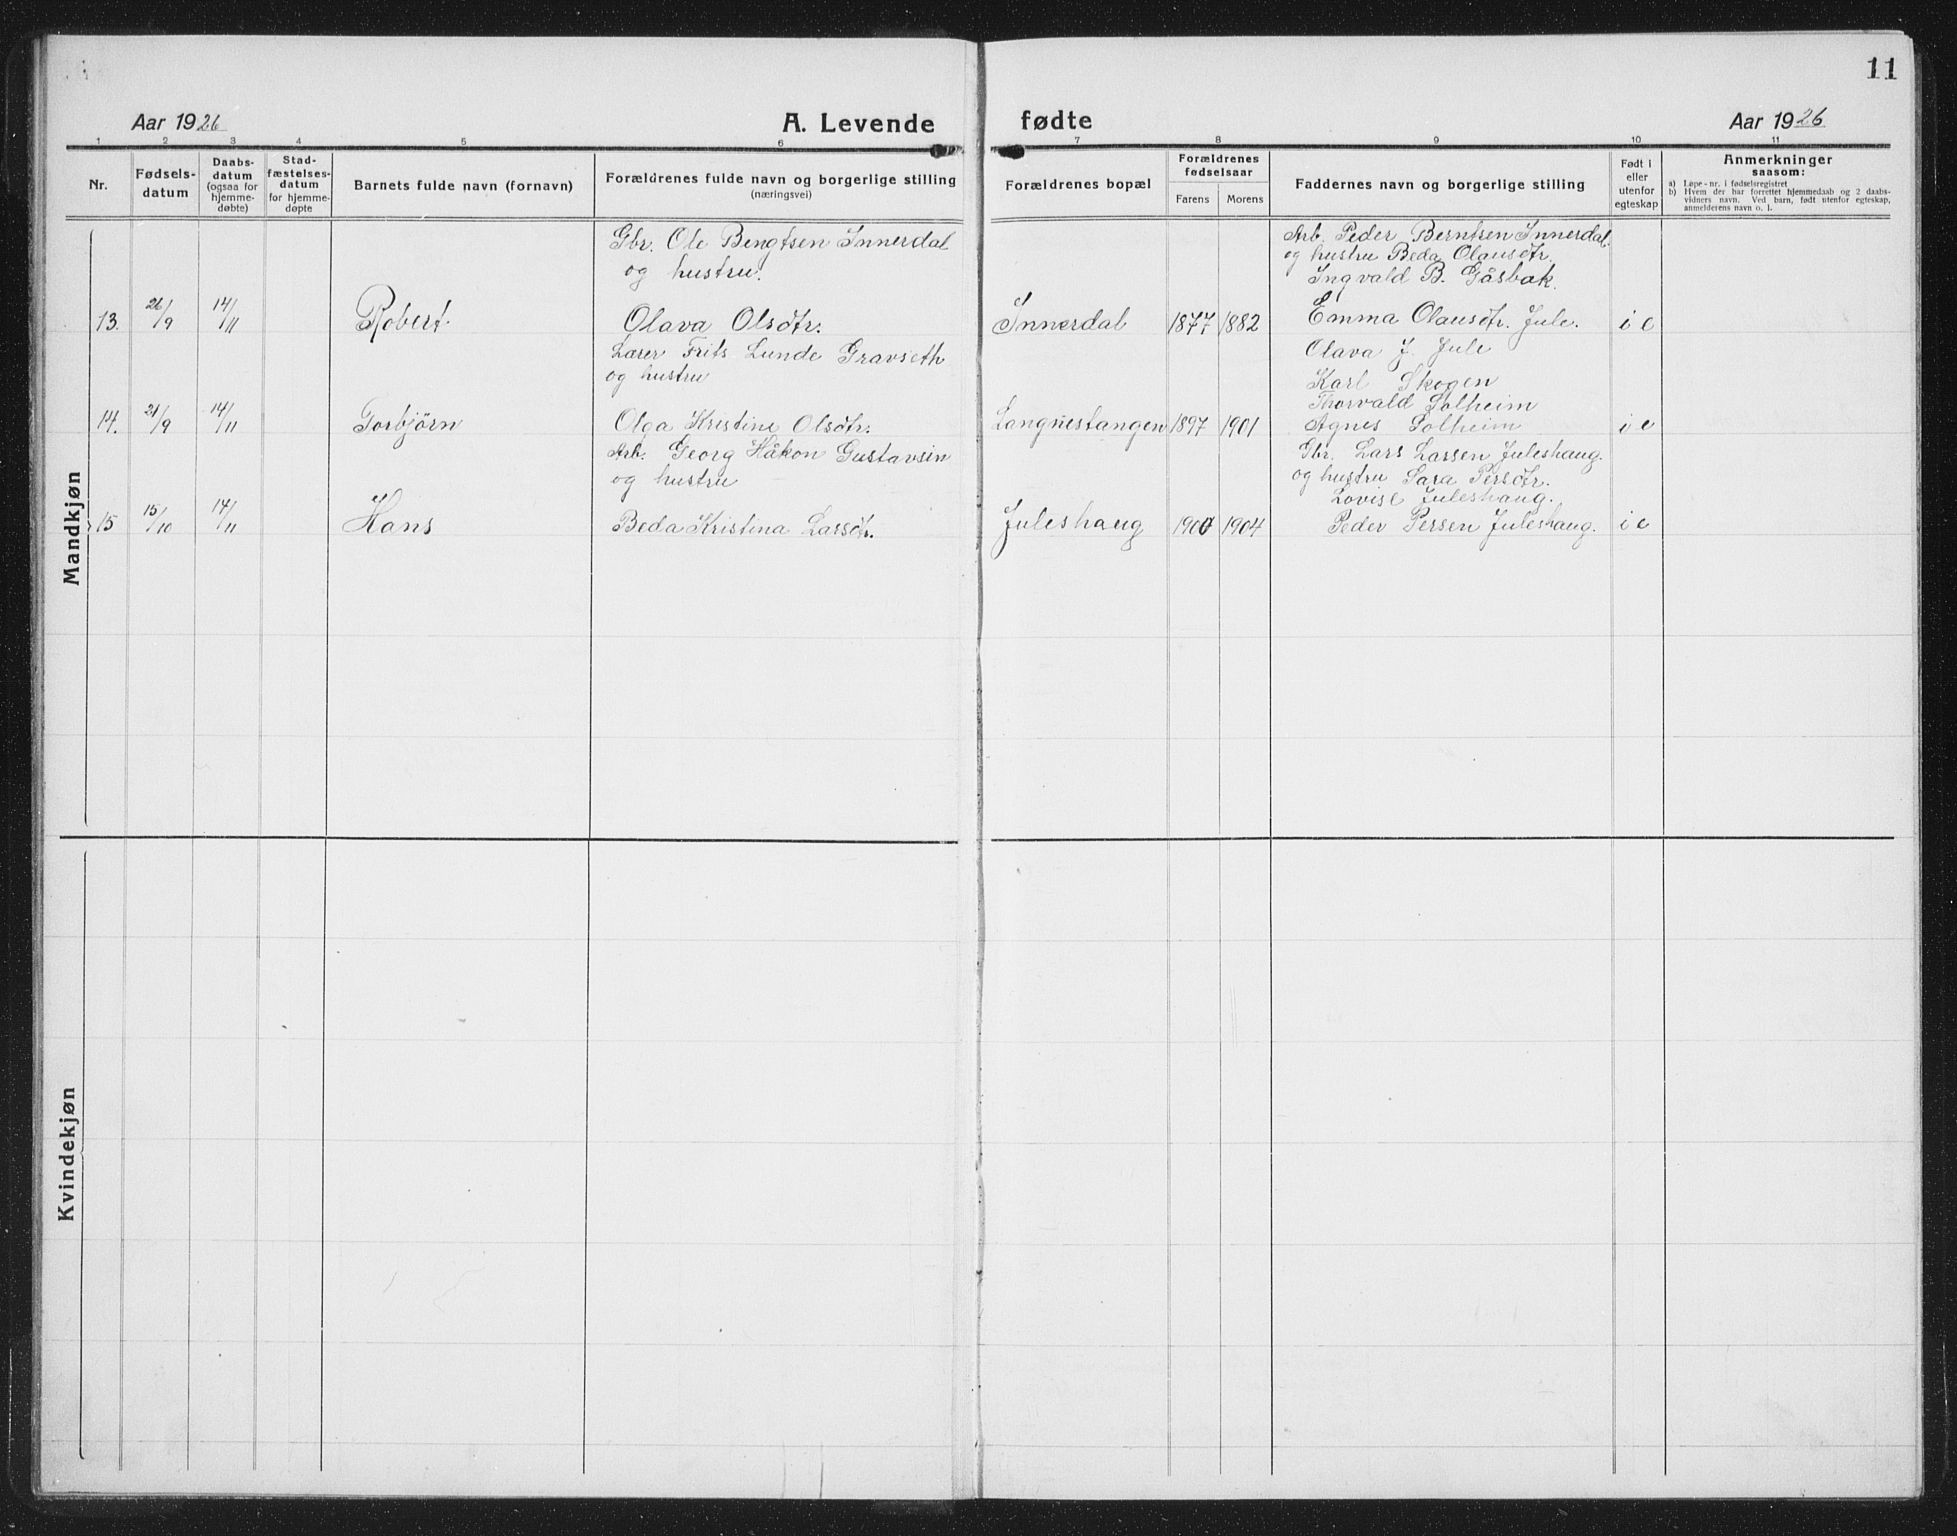 11
Aar 1926 A. Levende fødte Aar 1926
1 2 3 4 5 6 7 8 9 10 11
Nr.
Fødsels-
datum
Daabs-
datum
(ogsaa for
hjemme-
døbte)
Stad-
fæstelses-
datum
for hjemme-
døpte
Barnets fulde navn (fornavn)
Forældrenes fulde navn og borgerlige stilling
(næringsvei)
Forældrenes bopæl
Forældrenes
fødselsaar
Farens Morens
Faddernes navn og borgerlige stilling
Født i
eller
utenfor
egteskap
Anmerkninger
saasom:
a) Løpe-nr. i fødselsregistret
b) Hvem der har forrettet hjemmedaab og 2 daabs-
vidners navn. Ved barn, født utenfor egteskap,
anmelderens navn o. l.
Mandkjøn
13. 26/9 14/11 Robert.
Gbr. Ole Bengtsen Innerdal
og hustru.
Olava Olsdtr.
Innerdal 1877 1882
Arb. Peder Berntsen Innerdal.
og hustru Beda Olausdtr.
Ingvald B. Gåsbak.
Emma Olausdtr. Jule.
Olava J. Jule
i e
14. 21/9 14/11 Torbjörn
Lærer Frits Lunde Gravseth
og hustru
Olga Kristine Olsdtr.
Langnestangen 1897 1901
Karl Skogen
Thorvald Solheim
Agnes Solheim
i e
15 15/10 14/11 Hans
Arb. Georg Håkon Gustavsin
og hustru
Beda Kristina Larsdtr.
Juleshaug 1900 1904
Gbr. Lars Larsen Juleshaug.
og hustru Sara Persdtr.
Lovise Juleshaug.
Peder Persen Juleshaug.
i e
Kvindekjøn